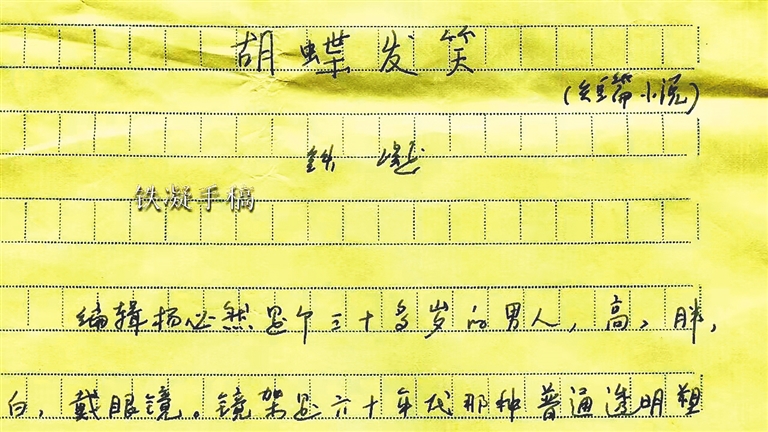 胡蝶发笑
(短篇小说)
铁凝
铁凝手稿
编辑杨必然是个三十多岁的男人，高、胖，
白，戴眼镜。镜架是六十年代那种普通透明塑